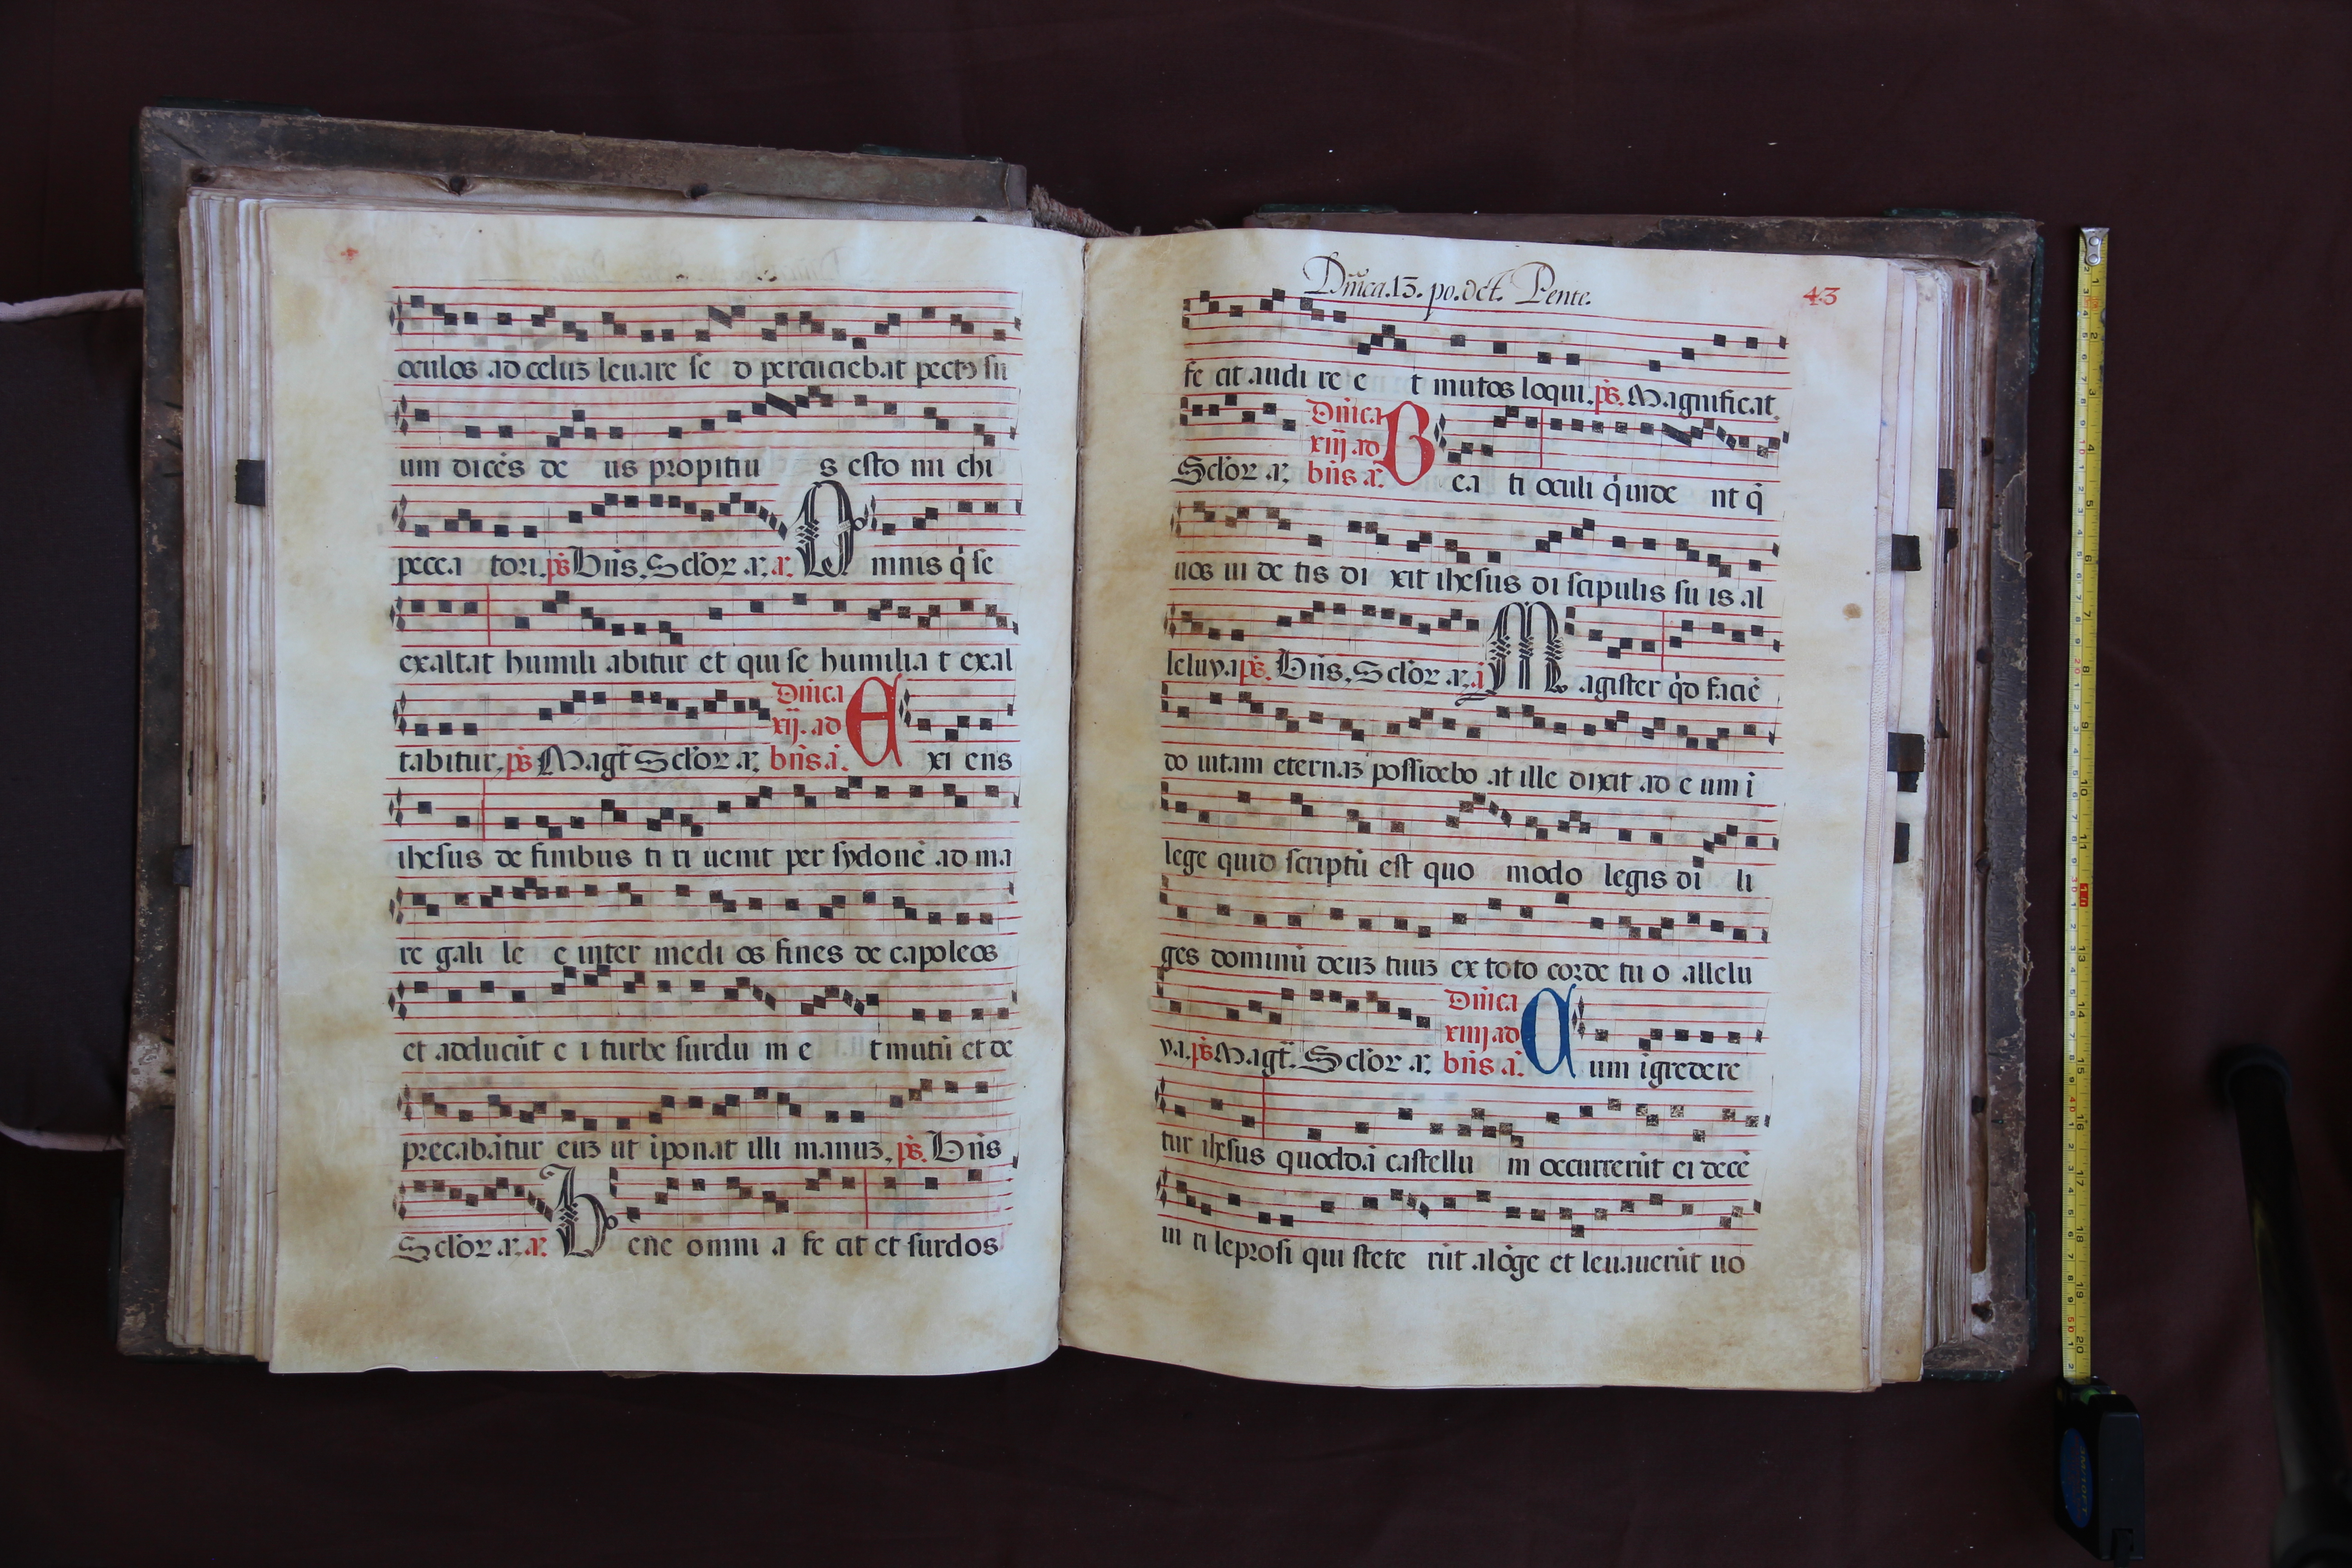 oculos ad celuz leuare se d percuciebat pectꝰ su
um dicēs de us propitiu s esto mi chi
pecca tori. ps̄ Bn̄s. Sclo̓ꝝ. a. a. O mnis q̇ se
exaltat humili abitur et qui se humilia t exal
tabitur. ps̄ Magt̄ Sclo̓ꝝ. a. Dn̄ica xij. ad bn̄s. a. E xi ens
ihesus de finibus ti ri uenit per sydonē ad ma
re gali le e inter medi os fines de capoleos
et adducūt e i turbe surdu m e t mutū et de
precabātur euz ut īponat illi manuz. ps̄. Bn̄s
Sclo̓ꝝ. a. a. B ene omni a fe cit et surdos
Dn̄ica. 13. po. oct. Pente.
43
fe cit audi re e t mutos loqui. ps̄. Magnificat.
Sclo̓ꝝ a. Dn̄ica xiij ad bn̄s a. B ea ti oculi q̇ uide nt q̄
uos ui de tis di xit ihesus di scipulis su is al
leluya ps̄. Bn̄s. Sclo̓ꝝ. a. a M agister q̇d faciē
do uitam eternaz possidebo at ille dixit ad e um ī
lege quid scriptū est quo modo legis di li
ges dominū deuz tuuz ex toto corde tu o allelu
ya. ps̄ Magt̄. Sclo̓ꝝ a. Dn̄ica xiiij ad bn̄s a. C um īgredere
tur ihesus quoddā castellu m occurrerūt ei decē
ui ri leprosi qui stete rūt a lōge et leuauerūt uo